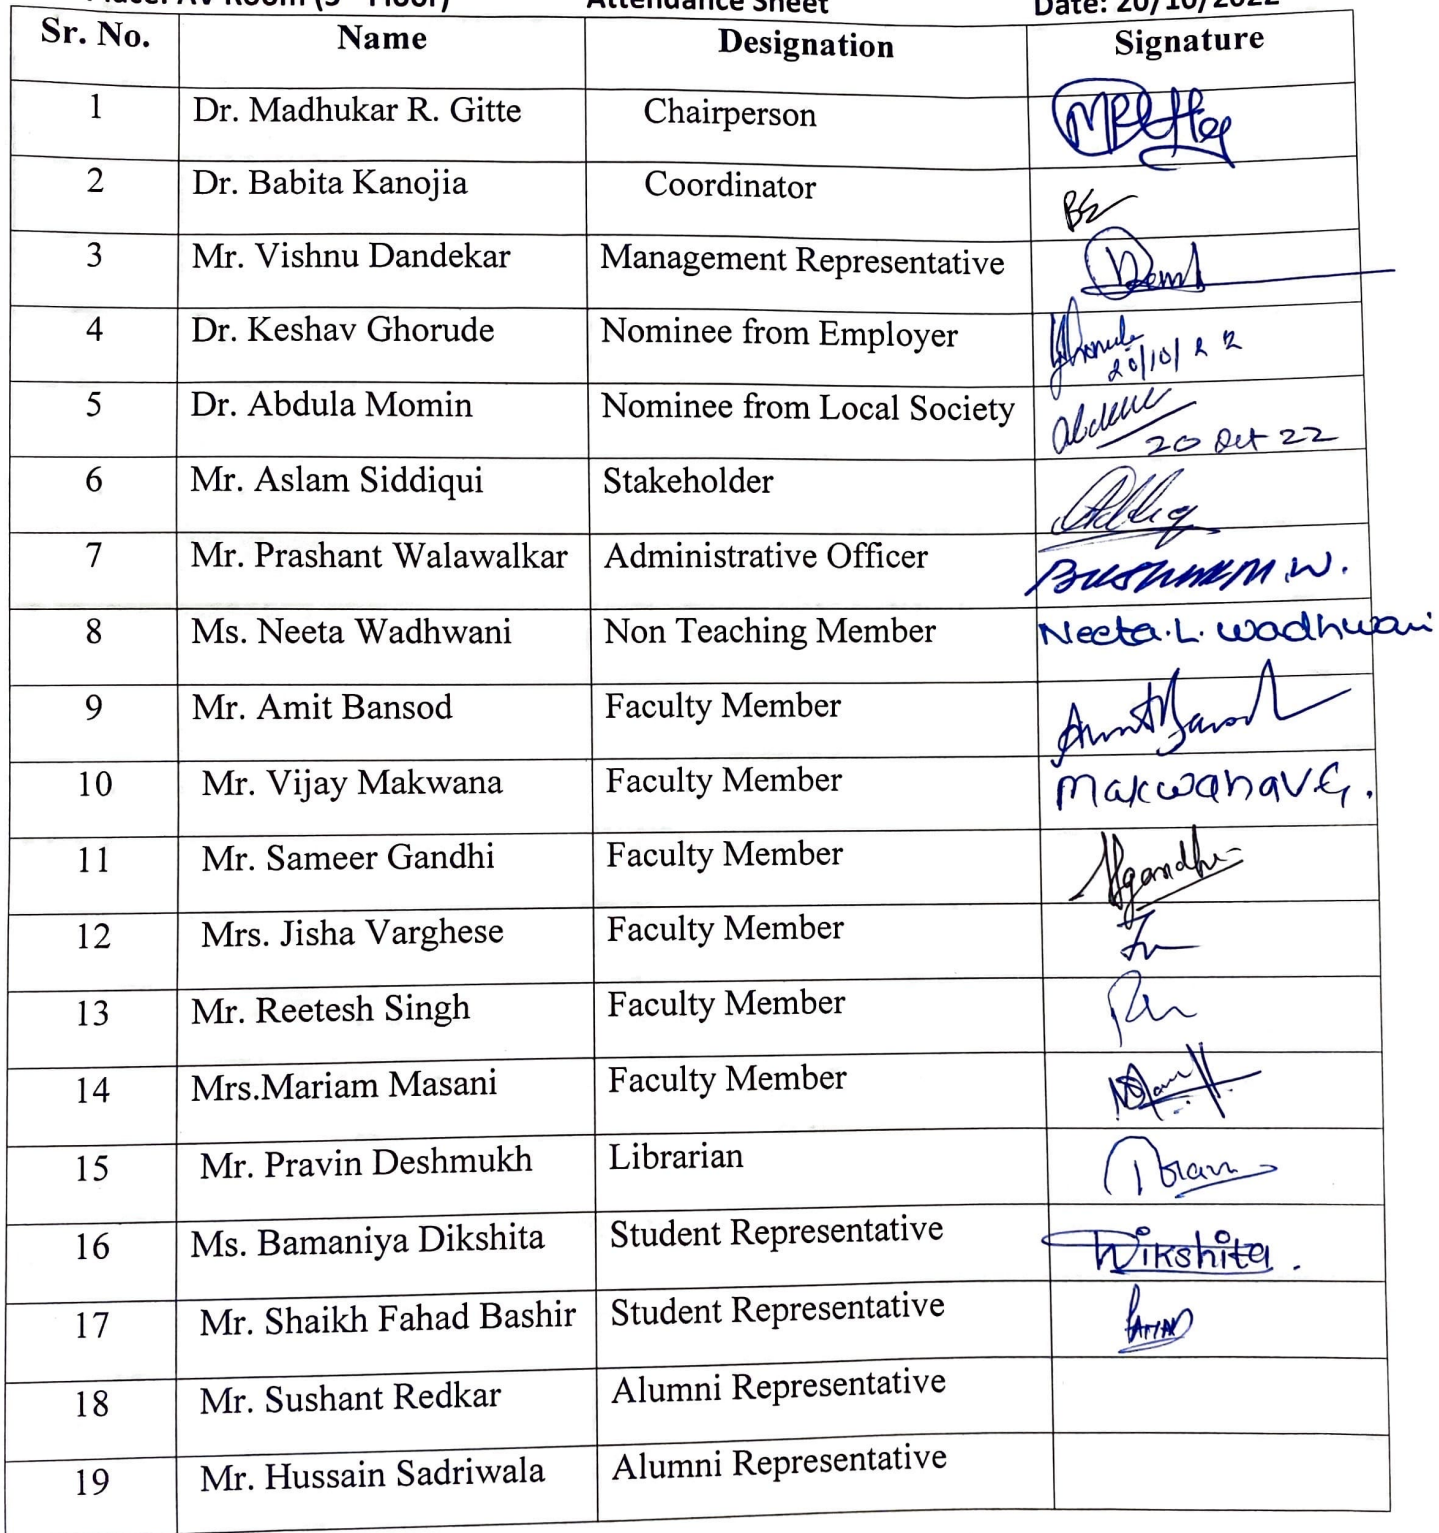 Place: AV Room (3rd Floor) Attendance Sheet Date: 20/10/2022
Sr. No. Name Designation Signature
1 Dr. Madhukar R. Gitte Chairperson
2 Dr. Babita Kanojia Coordinator
3 Mr. Vishnu Dandekar Management Representative
4 Dr. Keshav Ghorude Nominee from Employer
20/10/22
5 Dr. Abdula Momin Nominee from Local Society
20 Oct 22
6 Mr. Aslam Siddiqui Stakeholder
7 Mr. Prashant Walawalkar Administrative Officer
8 Ms. Neeta Wadhwani Non Teaching Member Neeta.L. Wadhwani
9 Mr. Amit Bansod Faculty Member
10 Mr. Vijay Makwana Faculty Member Makwana V.G.
11 Mr. Sameer Gandhi Faculty Member
12 Mrs. Jisha Varghese Faculty Member
13 Mr. Reetesh Singh Faculty Member
14 Mrs.Mariam Masani Faculty Member
15 Mr. Pravin Deshmukh Librarian
16 Ms. Bamaniya Dikshita Student Representative Dikshita.
17 Mr. Shaikh Fahad Bashir Student Representative
18 Mr. Sushant Redkar Alumni Representative
19 Mr. Hussain Sadriwala Alumni Representative